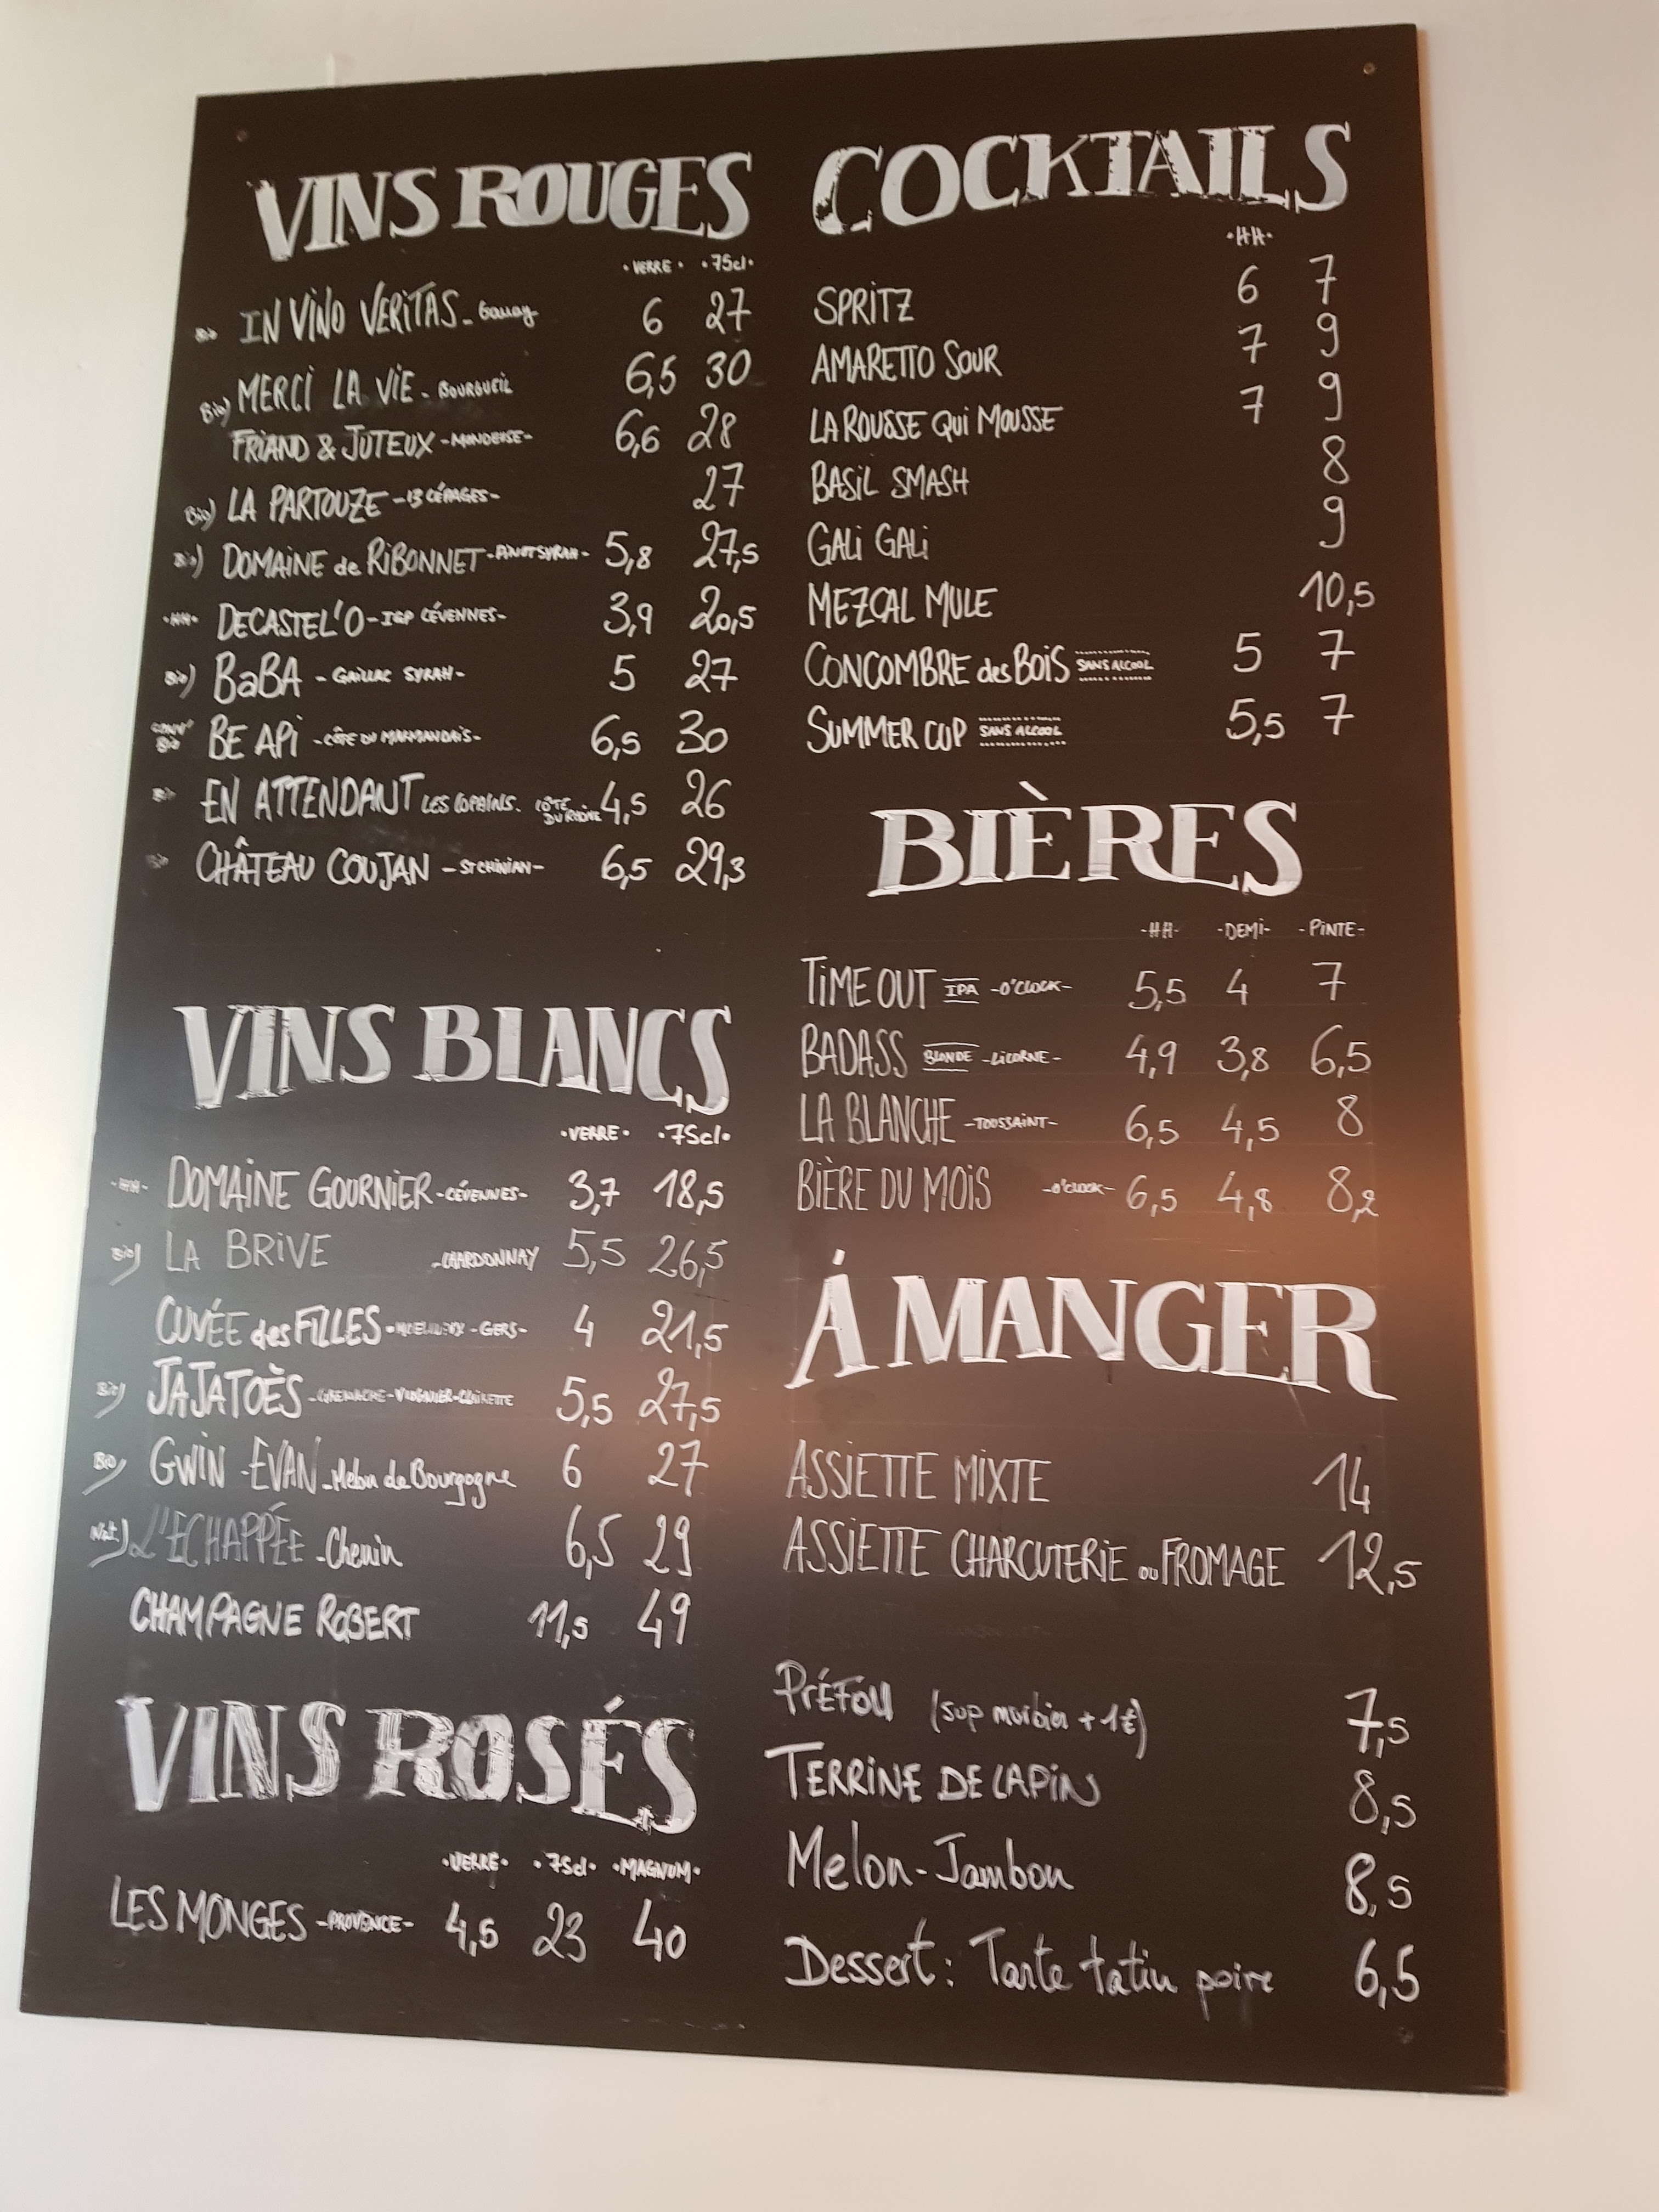 VINS ROUGES
·VERRE· ·75cl·
Bio IN VINO VERITAS - Gamay 6 27
Bio) MERCI LA VIE - BOURGUEIL 6,5 30
FRIAND & JUTEUX -MONDEUSE- 6,6 28
Bio) LA PARTOUZE -13 CÉPAGES- 27
Bio) DOMAINE de RIBONNET -PINOT SYRAH- 5,8 27,5
·HH· DECASTEL'O -IGP CÉVENNES- 3,9 20,5
Bio) BaBA - GAILLAC SYRAH - 5 27
Bio BE APi -CÔTE DU MARMANDAIS- 6,5 30
Bio EN ATTENDANT LES COPAINS. CÔTE DU RHÔNE 4,5 26
Bio CHÂTEAU COUJAN - ST CHINIAN - 6,5 29,3
VINS BLANCS
·VERRE· ·75cl·
-HH- DOMAINE GOURNIER -CÉVENNES- 3,7 18,5
Bio) LA BRIVE -CHARDONNAY 5,5 26,5
CUVÉE des FILLES -MOELLEUX - GERS- 4 21,5
Bio) JAJATOÈS -GRENACHE-VIOGNIER-CLAIRETTE 5,5 27,5
Bio) GWIN-EVAN - Melon de Bourgogne 6 27
Nat) L'ECHAPPÉE - Chenin 6,5 29
CHAMPAGNE ROBERT 11,5 49
VINS ROSÉS
·VERRE· ·75cl· ·MAGNUM·
LES MONGES -PROVENCE- 4,5 23 40
COCKTAILS
·HH·
SPRITZ 6 7
AMARETTO SOUR 7 9
LA ROUSSE QUi MOUSSE 7 9
BASiL SMASH 8
GALi GALi 9
MEZCAL MULE 10,5
CONCOMBRE des BOiS SANS ALCOOL 5 7
SUMMER CUP SANS ALCOOL 5,5 7
BIÈRES
-HH- -DEMI- -PINTE-
TiME OUT IPA -O'CLOCK- 5,5 4 7
BADASS BLONDE -LICORNE- 4,9 3,8 6,5
LA BLANCHE -TOUSSAINT- 6,5 4,5 8
BIÈRE DU MOIS -O'CLOCK- 6,5 4,8 8,2
Á MANGER
ASSIETTE MIXTE 14
ASSIETTE CHARCUTERIE ou FROMAGE 12,5
PRÉFOU (sup morbier +1€) 7,5
TERRINE DE LAPIN 8,5
Melon-Jambon 8,5
Dessert : Tarte tatin poire 6,5